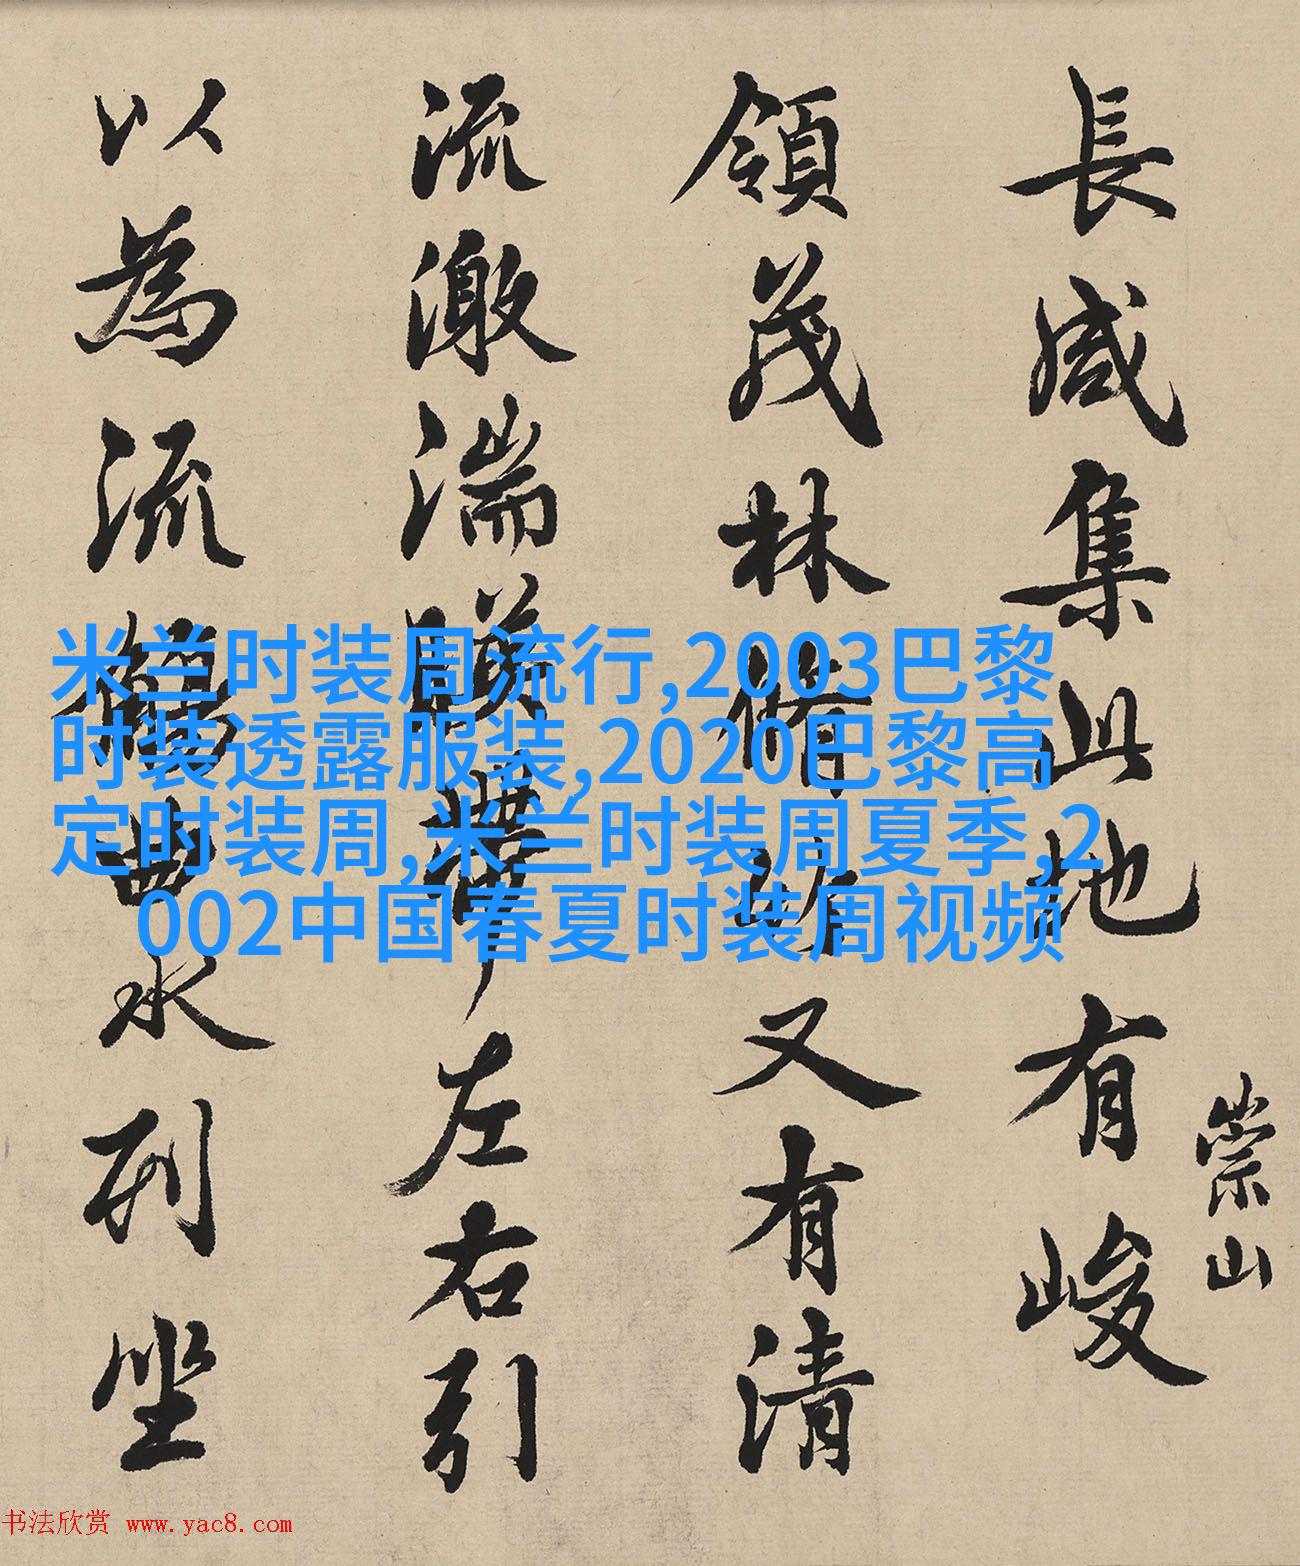 長咸集此地有峻
崇山
領茂林脩竹又有清
流激湍暎帶左右引
以為流觴曲水列坐
米兰时装周流行,2003巴黎
时装透露服装,2020巴黎高
定时装周,米兰时装周夏季,2
002中国春夏时装周视频
书法欣赏 www.yac8.com